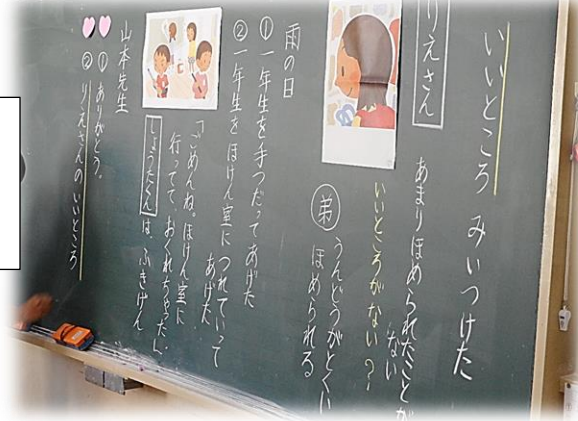 いいところ みいつけた
りえさん
あまりほめられたことが
ない
いいところがない?
弟
うんどうがとくい
ほめられる
雨の日
①一年生を手つだってあげた
②一年生をほけん室につれていって
あげた
「ごめんね。ほけん室に
行ってて、おくれちゃった」
しょうたくんは、ふきげん
山本先生
①ありがとう。
②りえさんのいいところ